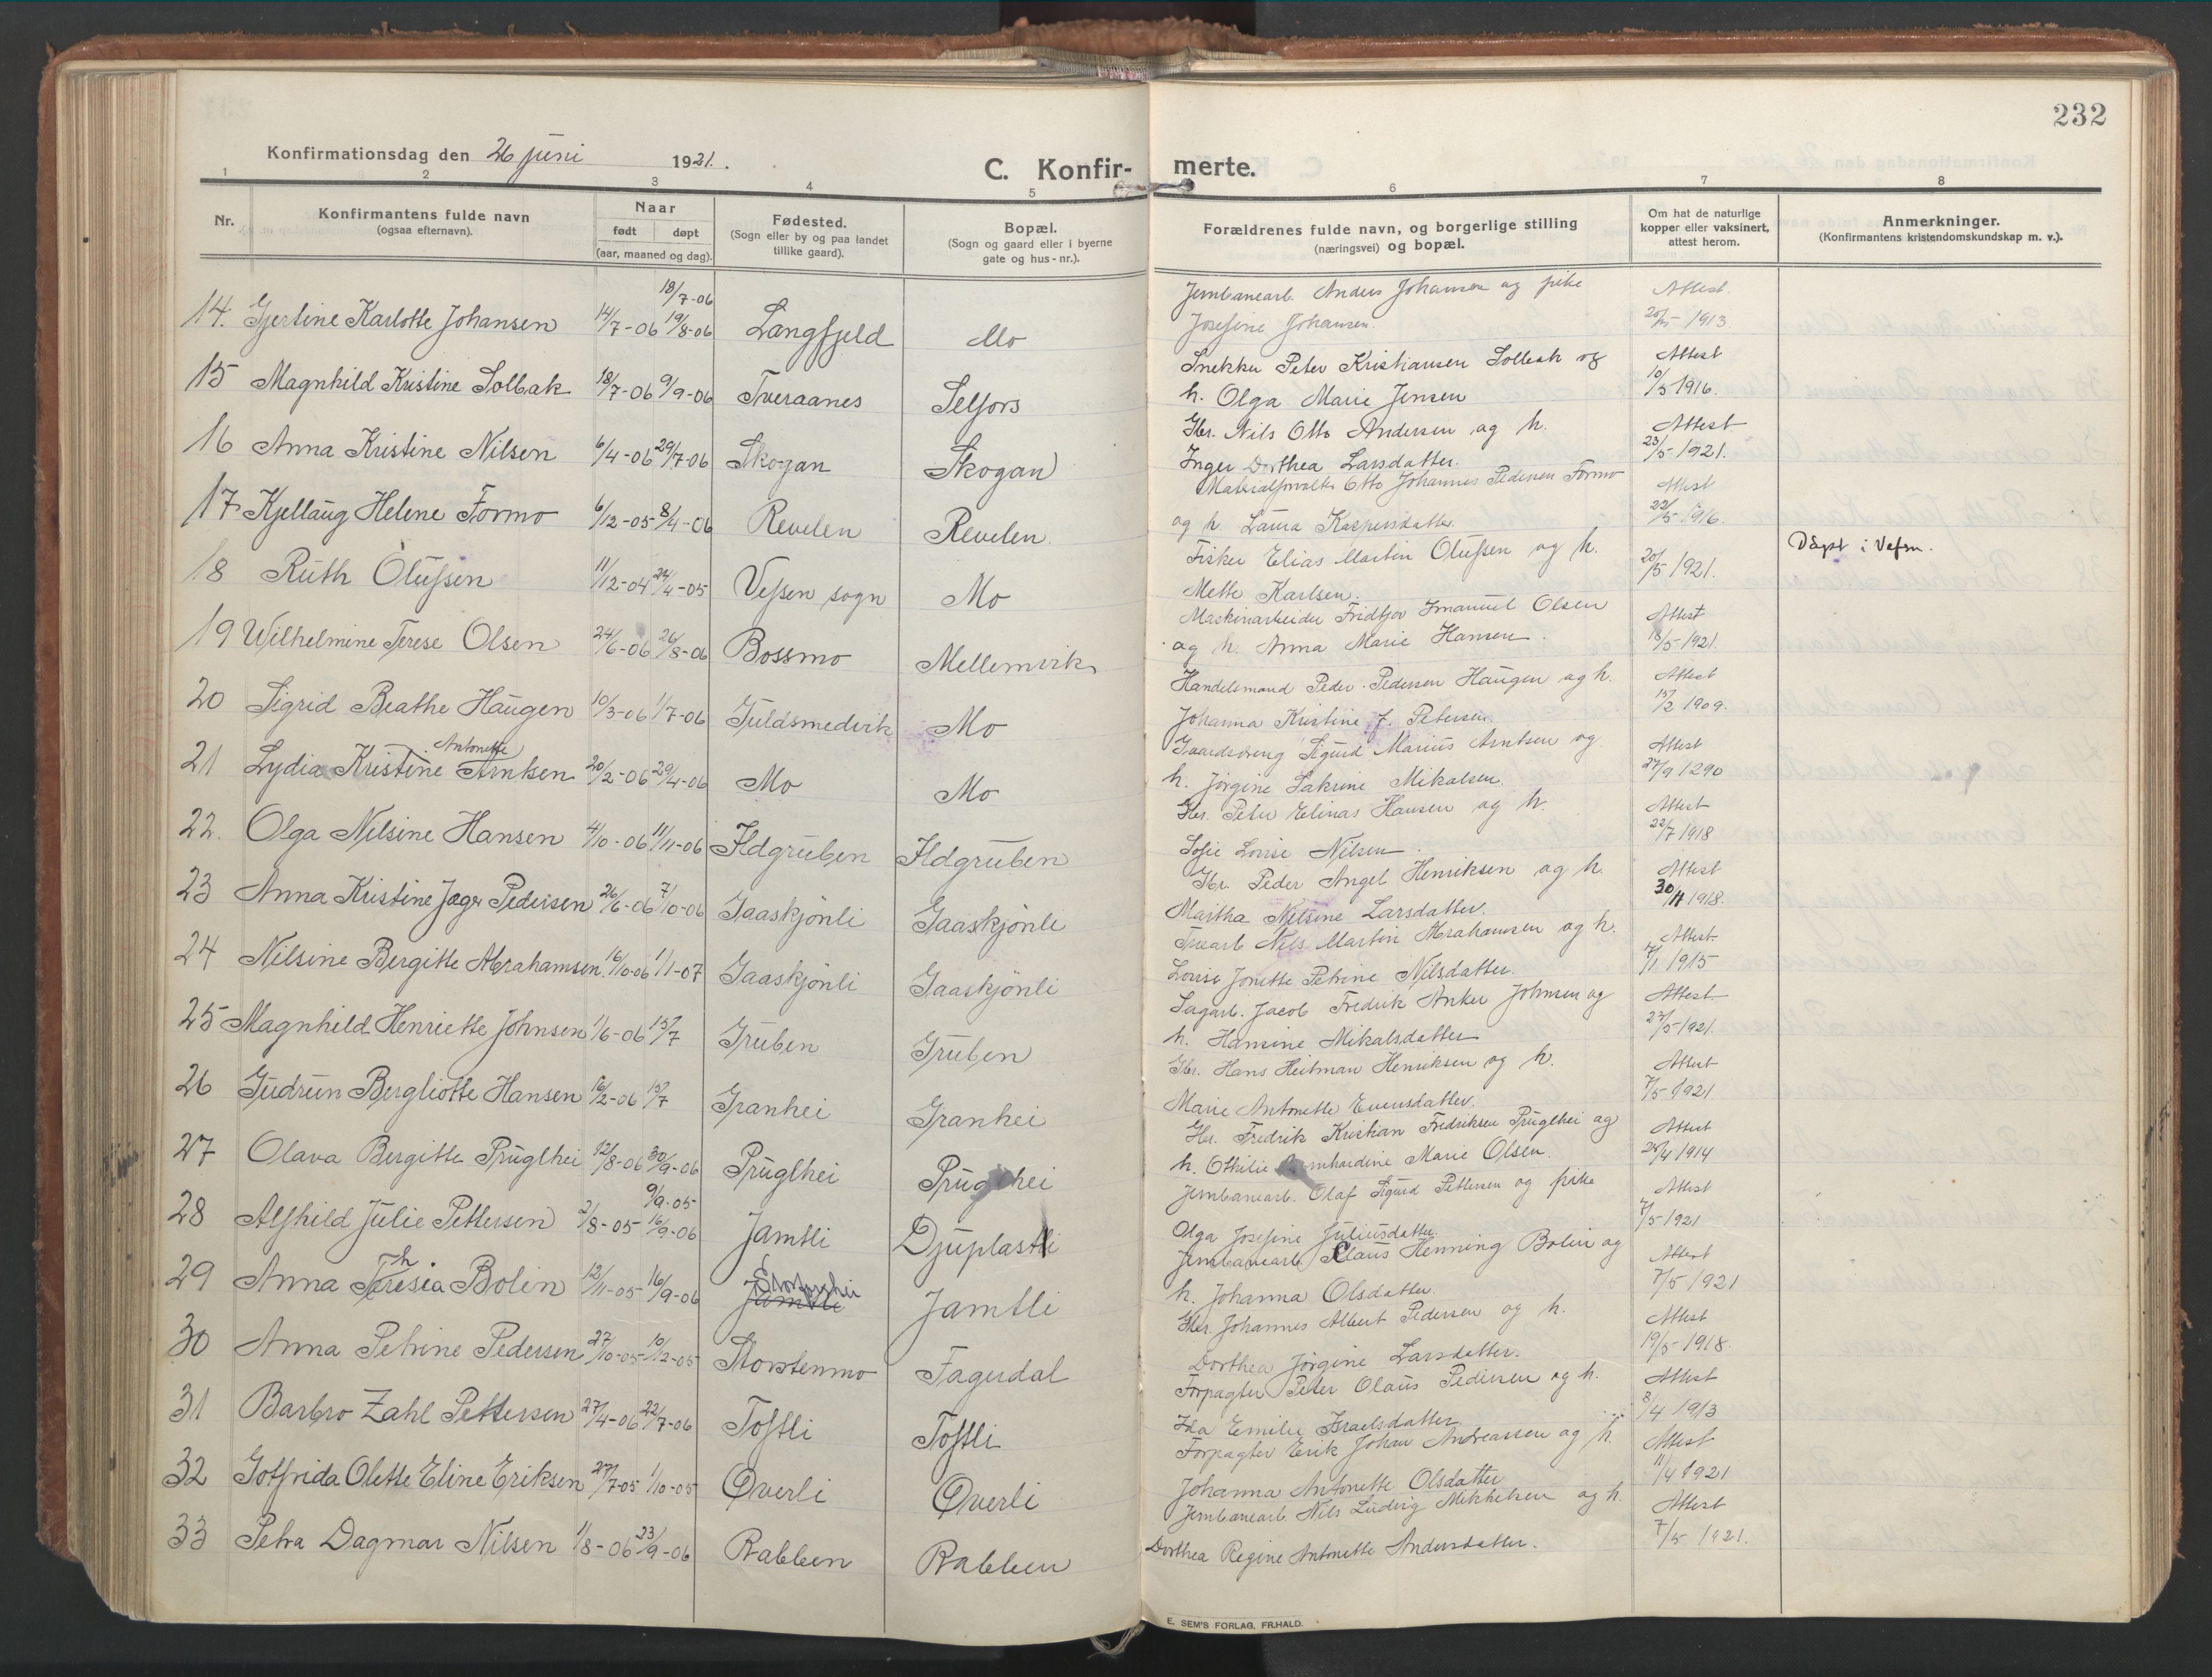 232
Konfirmationsdag den 26 juni 1921.
C. Konfir- merte.
1 2 3 4 5 6 7 8
Nr.
Konfirmantens fulde navn
(ogsaa efternavn).
Naar
født døpt
(aar, maaned og dag).
Fødested.
(Sogn eller by og paa landet
tillike gaard).
Bopæl.
(Sogn og gaard eller i byerne
gate og hus-nr.).
Forældrenes fulde navn, og borgerlige stilling
(næringsvei) og bopæl.
Om hat de naturlige
kopper eller vaksinert,
attest herom.
Anmerkninger.
(Konfirmantens kristendomskundskap m. v.).
18/7-06
14. Gjertine Karlotte Johansen 14/7-06 19/8-06 Langfjeld Mo
Jernbanearb. Anders Johansen og pike Attest.
Josefine Johansen. 20/5 1913
15 Magnhild Kristine Solbak 18/7-06 9/9-06 Tveraanes Selfors
Snekker Peter Kristiansen Solbak og Attest
h. Olga Marie Jensen 10/5 1916.
16 Anna Kristine Nilsen 6/4-06 29/7-06 Skogan Skogan
Gbr. Nils Otto Andersen og h. Attest
Inger Dorthea Larsdatter. 23/5 1921.
17 Kjellaug Helene Formo 6/12-05 8/4-06 Revelen Revelen
Materialforvalter Otto Johannes Pedersen Formo Attest
og h. Laura Kaspersdatter. 22/5 1916.
18 Ruth Olufsen 11/12-04 24/4-05 Vefsen sogn Mo
Fisker Elias Martin Olufsen og h. 20/5 1921. Døpt i Vefsn.
Mette Karlsen.
19 Wilhelmine Terese Olsen 24/6-06 26/8-06 Bossmo Mellemvik
Maskinarbeider Fridtjov Imanuel Olsen Attest
og h. Anna Marie Hansen. 18/5 1921.
20 Sigrid Beathe Haugen 10/3-06 1/7-06 Guldsmedvik Mo
Handelsmand Peder Pedersen Haugen og h. Attest
Johanna Kristine J. Petersen. 15/2 1909.
Antonette
21 Lydia Kristine Arntsen 20/2-06 29/4-06 Mo Mo
Gaardsdreng Sigurd Marius Arntsen og Attest
h. Jørgine Sakrine Mikalsen. 27/9 1290
22. Olga Nilsine Hansen 4/10-06 11/11-06 Ildgruben Ildgruben
Gbr. Peter Elinas Hansen og h. Attest
Sofie Lovise Nilsen. 22/7 1918
23 Anna Kristine Jæger Pedersen 26/6-06 7/10-06 Gaaskjönli Gaaskjönli
Gbr. Peder Angel Henriksen og h. Attest
Martha Nilsine Larsdatter. 30/4 1918.
24 Nilsine Bergitte Abrahamsen 16/10-06 1/1-07 Gaaskjönli Gaaskjönli
Nils Martin Abrahamsen og h. Attest.
Lovise Jonette Petrine Nilsdatter. 17/1 1915
25 Magnhild Henriette Johnsen 1/6-06 15/7 Gruben Gruben
Sagarb. Jacob Fredrik Anker Johnsen og Attest
h. Hansine Mikalsdatter 27/5 1921.
26 Gudrun Bergliotte Hansen 16/2-06 15/7 Granhei Granhei
Gbr. Hans Heitman Henriksen og h. Attest
Marie Antonette Evensdatter. 7/5 1921
27 Olava Bergitte Pruglhei 12/8-06 30/9-06 Pruglhei Pruglhei
Gbr. Fredrik Kristian Fredriksen Pruglhei og Attest
h. Othilie Marie Olsen. 24/4 1914
9/9-05
28 Alfhild Julie Pettersen 2/8-05 16/9-06 Jamtli Djuplastli
Jernbanearb. Olaf Sigurd Pettersen og pike Attest
Olga Josefine Juliusdatter 7/5 1921
29 Anna Theresia Bolin 12/11-05 16/9-06 Jamtli Jamtli
Jernbanearb. Claus Henning Bolin og Attest
h. Johanna Olsdatter 7/5 1921
30 Anna Petrine Pedersen 27/10-05 10/12-05 Storstenmo Fagerdal
Gbr. Johannes Albert Pedersen og h. Attest
Dorthea Jørgine Larsdatter. 19/5 1918.
31 Barbro Zahl Pettersen 27/4-06 22/7-06 Toftli Toftli
Forpagter Peter Olaus Pedersen og h. Attest
Ida Emilie Israelsdatter. 8/4 1913
32 Gotfrida Olette Eline Eriksen 27/7-05 1/10-05 Øverli Øverli
Forpagter Erik Johan Andreassen og h. Attest
Johanna Antonette Olsdatter 11/4 1921
33 Petra Dagmar Nilsen 1/8-06 23/9-06 Rabben Rabben
Jernbanearb. Nils Ludvig Mikkelsen og h. Attest
Dorthea Regine Antonette Andersdatter. 7/5 1921.
E. SEM'S FORLAG, FR.HALD.